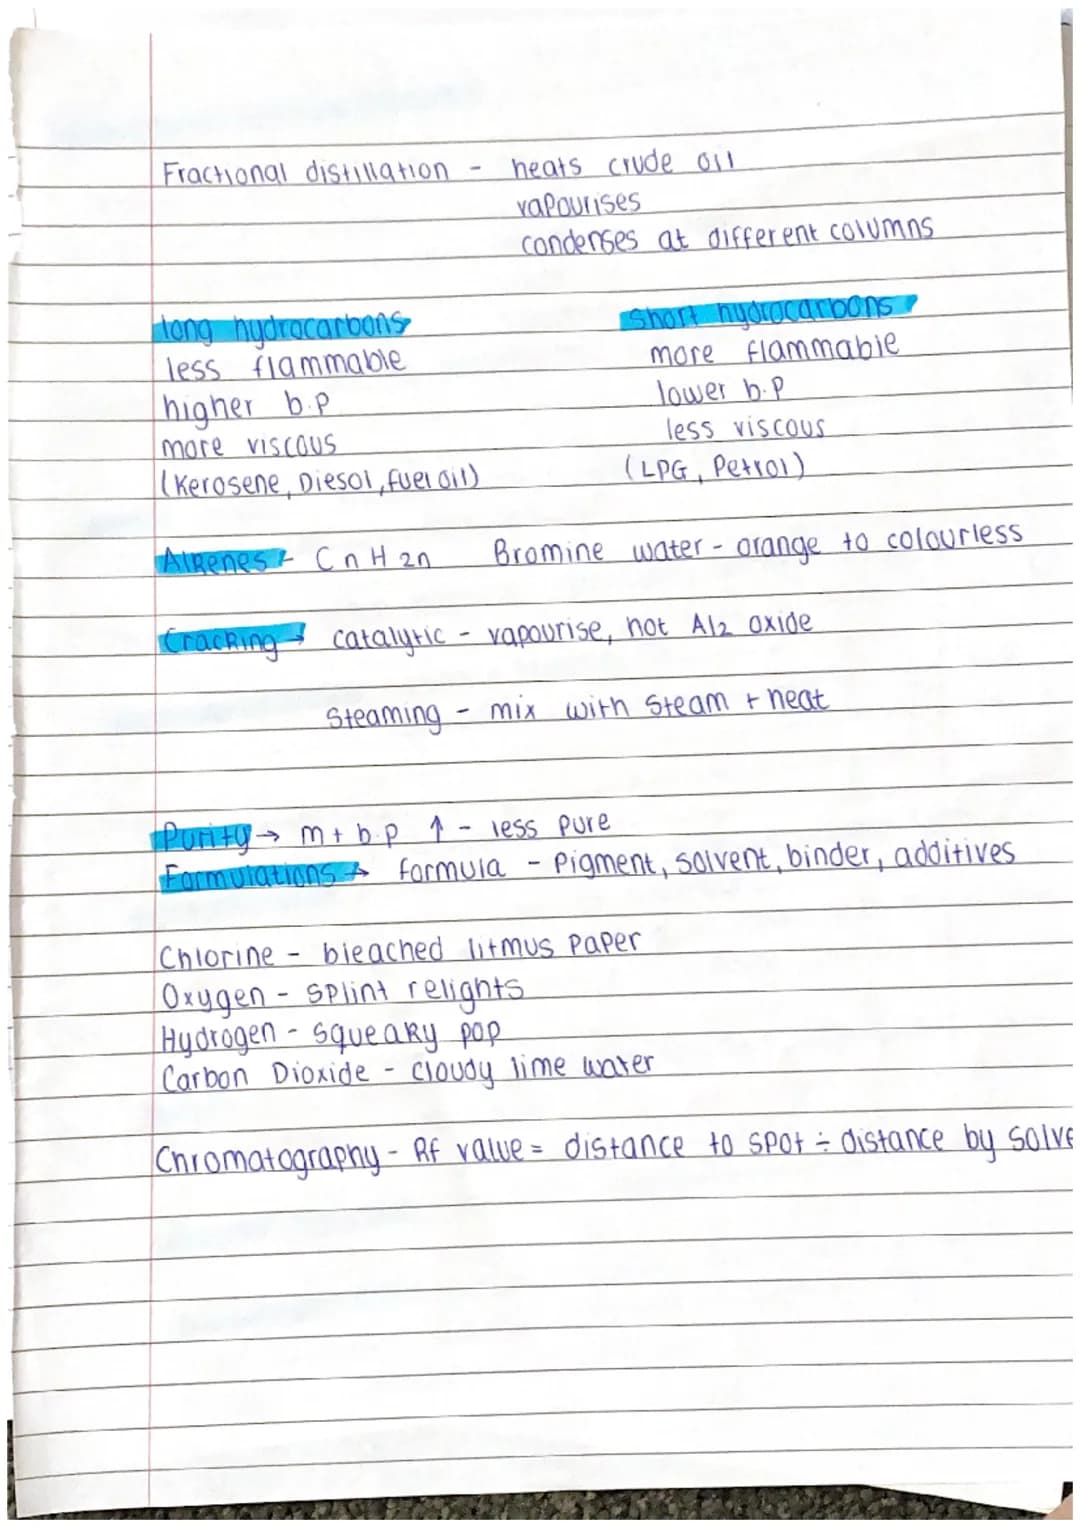 Fractional distillation - heats crude oil
vapourises
condenses at different columns
long hydrocarbons
less flammable
higher b.p
more viscous
(Kerosene, Diesol, fuel oil)
Short hydrocarbons
more flammable
lower b.p
less viscous
(LPG, Petrol)
Alkenes - CnH2n Bromine water - orange to colourless
Cracking → catalytic - vapourise, hot Al2 oxide
Steaming - mix with steam + heat
Purity → m + b.p ↑ - less pure
Formulations → formula - Pigment, solvent, binder, additives
Chlorine - bleached litmus paper
Oxygen - splint relights
Hydrogen - squeaky pop
Carbon Dioxide - cloudy lime water
Chromatography - Rf value = distance to spot ÷ distance by solve